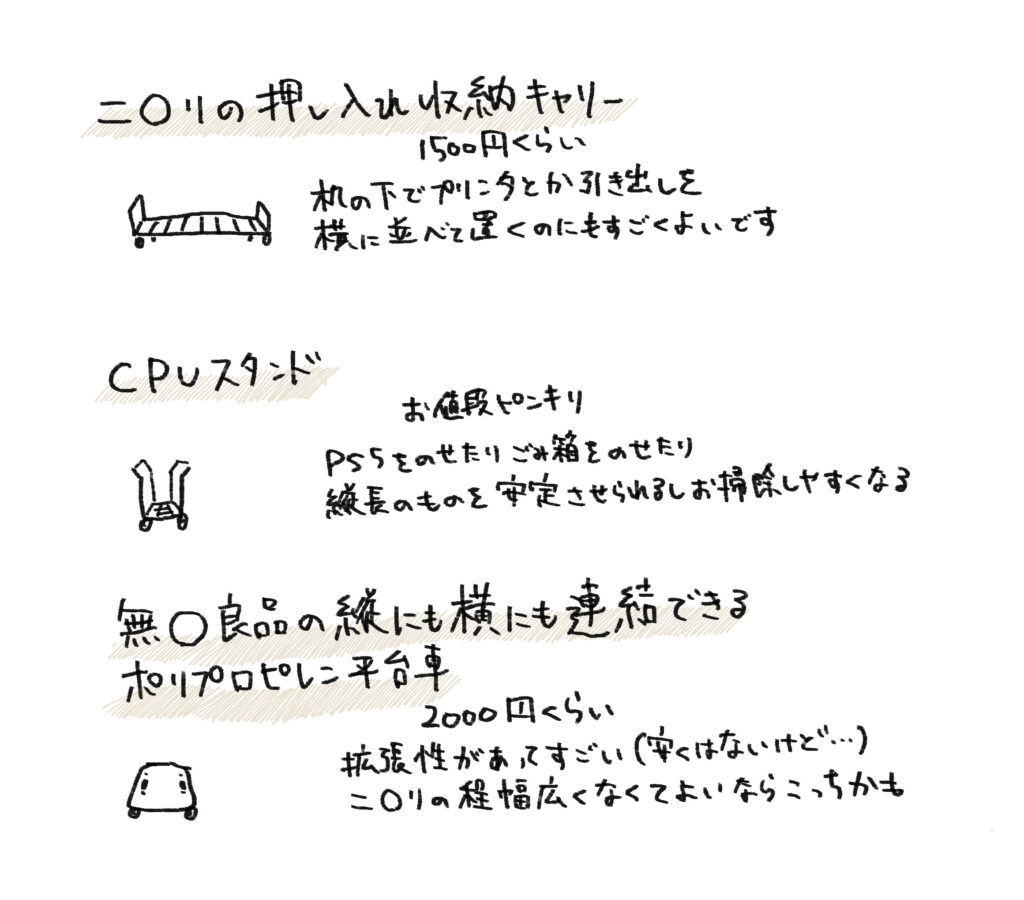 ニ〇リの押し入れ収納キャリー
1500円くらい
机の下でプリンタとか引き出しを
横に並べて置くのにもすごくよいです
CPUスタンド
お値段ピンキリ
PS5をのせたりごみ箱をのせたり
縦長のものを安定させられるしお掃除しやすくなる
無〇良品の縦にも横にも連結できる
ポリプロピレン平台車
2000円くらい
拡張性があってすごい(安くはないけど…)
ニ〇リの程幅広くなくてよいならこっちかも